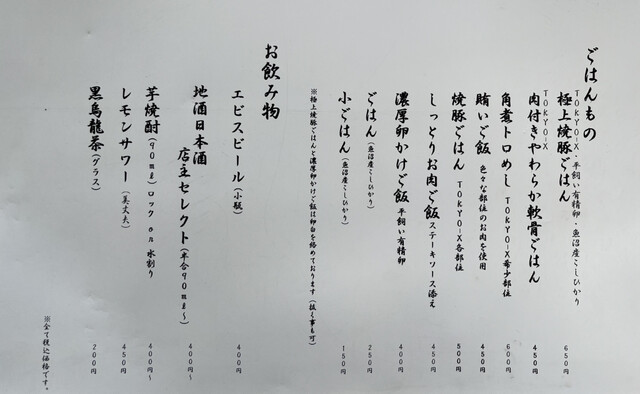 ごはんもの
TOKYO-X・平飼い有精卵・魚沼産こしひかり
極上焼豚ごはん 650円
TOKYO-X
肉付きやわらか軟骨ごはん 450円
角煮トロめし TOKYO-X希少部位 600円
賄いご飯 色々な部位のお肉を使用 450円
焼豚ごはん TOKYO-X各部位 500円
しっとりお肉ご飯 ステーキソース添え 450円
濃厚卵かけご飯 平飼い有精卵 400円
ごはん(魚沼産こしひかり) 250円
小ごはん(魚沼産こしひかり) 150円
※極上焼豚ごはんと濃厚卵かけご飯は卵白を絡めております(抜く事も可)
お飲み物
エビスビール(小瓶) 400円
地酒日本酒
店主セレクト(半合90ml~) 400円~
芋焼酎(90ml)ロック or 水割り 400円~
レモンサワー(美丈夫) 450円
黒烏龍茶(グラス) 200円
※全て税込価格です。